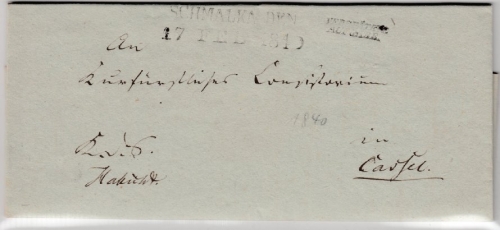 SCHMALKALDEN
17 FEB 1840
An
Kurfürstliches Consistorium
1840
in
K.d.S.
Cassel.